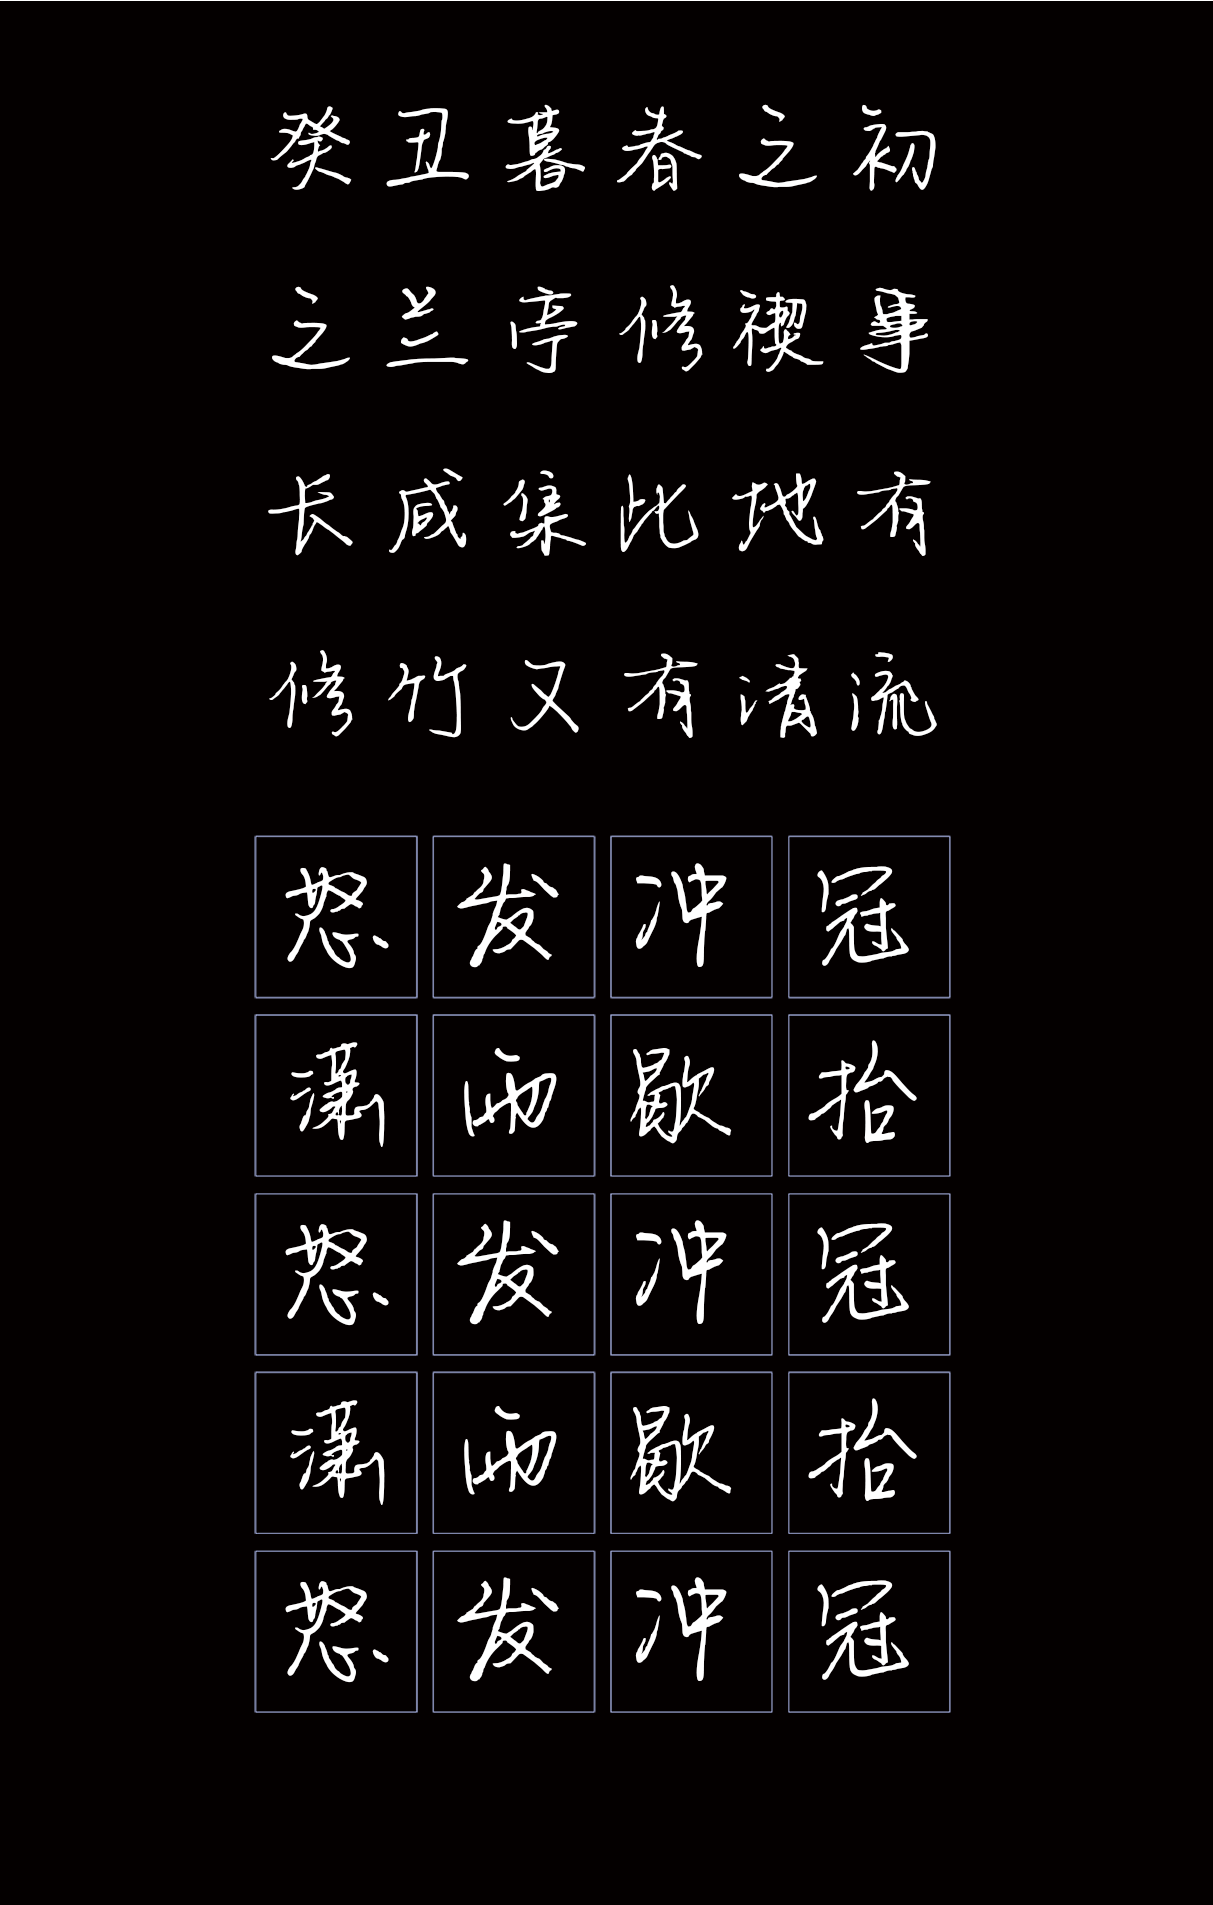 癸丑暮春之初
之兰亭修禊事
长咸集此地有
修竹又有清流
怒发冲冠
潇雨歇抬
怒发冲冠
潇雨歇抬
怒发冲冠